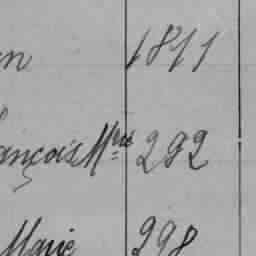 en 1871
ançois M^me 292
Marie 298